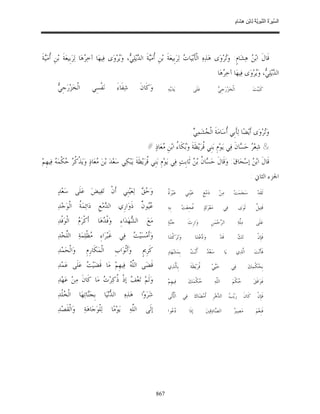 السيرة النبوية لابن هشام
قَالَ ابْنُ هِشَامٍ وَتُرْوَى هَذِهِ الْأَبْيَاتُ لِرَبِيعَةَ بْنِ أُمَيَّةَ الدَّيْلِيِّ، وَيُرْوَى فِيهَا آخِرُهَا لِرَبِيعَةَ بْنِ أُمَيَّةَ
الدَّيْلِيِّ، وَيُرْوَى فِيهَا آخِرُهَا
كَبَيْتِ الْخَزْرَجِيِّ عَلَى يَدَيْهِ وَكَانَ شِفَاءَ نَفْسِي الْخَزْرَجِيُّ
وَتُرْوَى أَيْضًا لِأَبِي أُسَامَةَ الْجُشَمِيِّ
& شِعْرُ حَسَّانَ فِي يَوْمِ بَنِي قُرَيْظَةَ وَبُكَاءُ ابْنِ مُعَاذٍ #
قَالَ ابْنُ إِسْحَاقَ: وَقَالَ حَسَّانُ بْنُ ثَابِتٍ فِي يَوْمِ بَنِي قُرَيْظَةَ يَبْكِي سَعْدَ بْنَ مُعَاذٍ وَيَذْكُرُ حُكْمَهُ فِيهِمْ
الجزء الثاني
لَقَدْ سَجَمَتْ مِنْ دَمْعِ عَيْنِي عَبْرَةٌ وَحُقَّ لِعَيْنِي أَنْ تَفِيضَ عَلَى سَعْدِ
قَتِيلٌ ثَوَى فِي مَعْرَكٍ فُجِعَتْ بِهِ عُيُونٌ ذَوَارِي الدَّمْعِ دَائِمَةُ الْوَجْدِ
عَلَى مِلَّةِ الرَّحْمَنِ وَارِثَ جَنَّةٍ مَعَ الشُّهَدَاءِ وَفْدُهَا أَكْرَمُ الْوَفْدِ
فَإِنْ تَكُ قَدْ وَدَّعْتنَا وَتَرَكْتنَا وَأَمْسَيْتَ فِي غَبْرَاءِ مُظْلِمَةِ اللَّحْدِ
فَأَنْتَ الَّذِي يَا سَعْدُ أُبْتَ بِمَشْهَدٍ كَرِيمٍ وَأَثْوَابِ الْمَكَارِمِ وَالْحَمْدِ
بِحُكْمِكَ فِي حَيَّيْ قُرَيْظَةَ بِالَّذِي قَضَى اللَّهُ فِيهِمْ مَا قَضَيْتَ عَلَى عَمْدِ
فَوَافَقَ حُكْمَ اللَّهِ حُكْمُكَ فِيهِمْ وَلَمْ تَعْفُ إِذْ ذُكِّرْتَ مَا كَانَ مِنْ عَهْدِ
فَإِنْ كَانَ رَيْبُ الدَّهْرِ أَمْضَاكَ فِي الْأُلَى شَرَوْا هَذِهِ الدُّنْيَا بِجَنَّاتِهَا الْخُلْدِ
فَنِعْمَ مَصِيرُ الصَّادِقِينَ إِذَا دُعُوا إِلَى اللَّهِ يَوْمًا لِلْوَجَاهَةِ وَالْقَصْدِ
867